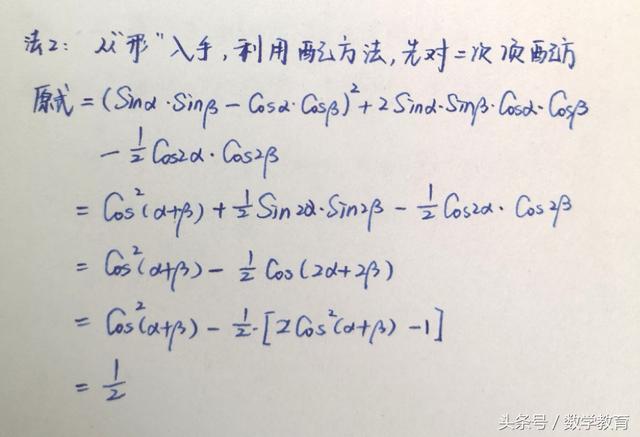 法2：从“形”入手，利用配方法，先对二次项配方
原式 = (Sinα·Sinβ - Cosα·Cosβ)² + 2Sinα·Sinβ·Cosα·Cosβ
- 1/2 Cos2α·Cos2β
= Cos²(α+β) + 1/2 Sin2α·Sin2β - 1/2 Cos2α·Cos2β
= Cos²(α+β) - 1/2 Cos(2α+2β)
= Cos²(α+β) - 1/2·[2Cos²(α+β) - 1]
= 1/2
头条号 / 数学教育